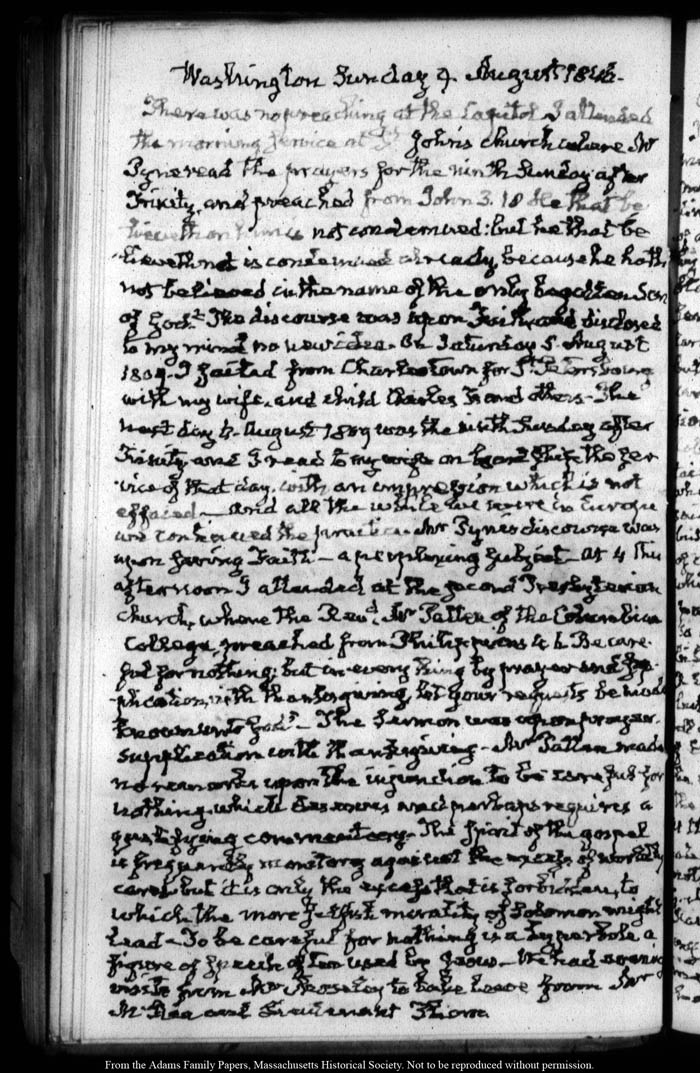 Washington Sunday 4. August 1842.
There was no preaching at the Capitol I attended
the morning service at St Johns church where Mr
Pyne read the prayers for the ninth Sunday after
Trinity, and preached from John 3. 18 He that be
lieveth on him is not condemned: but he that be
lieveth not is condemned already, because he hath
not believed in the name of the only begotten Son
of God. The discourse was upon Faith, and disclosed
to my mind no new idea. On Saturday 5. August
1809. I sailed from Charlestown for St Petersburg
with my wife, and child Charles Francis and others. The
next day 6. August 1809 was the ninth Sunday after
Trinity, and I read to my wife on board ship the ser
vice of that day, with an impression which is not
effaced — and all the while we were in Europe
we continued the practice. Mr Pyne's discourse was
upon saving Faith — a perplexing subject — At 4 this
afternoon I attended at the second Presbyterian
church, where the Revd. Mr Patten of the Columbian
College, preached from Philippians 4. 6. Be care
ful for nothing; but in every thing by prayer and sup
plication, with thanksgiving, let your requests be made
known unto God. — The Sermon was upon prayer,
supplication with thanksgiving — Mr Patten made
no remarks upon the injunction to be careful for
nothing, which deserves and perhaps requires a
qualifying commentary. The spirit of the gospel
is frequently monitory against the excess of worldly
care, but it is only the excess that is forbidden, to
which the more selfish morality of Solomon might
lead — To be careful for nothing is a hyperbole a
figure of speech often used by Jesus — We had evening
visits from Mr Moseley to take leave from Mr
and Lieutenant
From the Adams Family Papers, Massachusetts Historical Society. Not to be reproduced without permission.